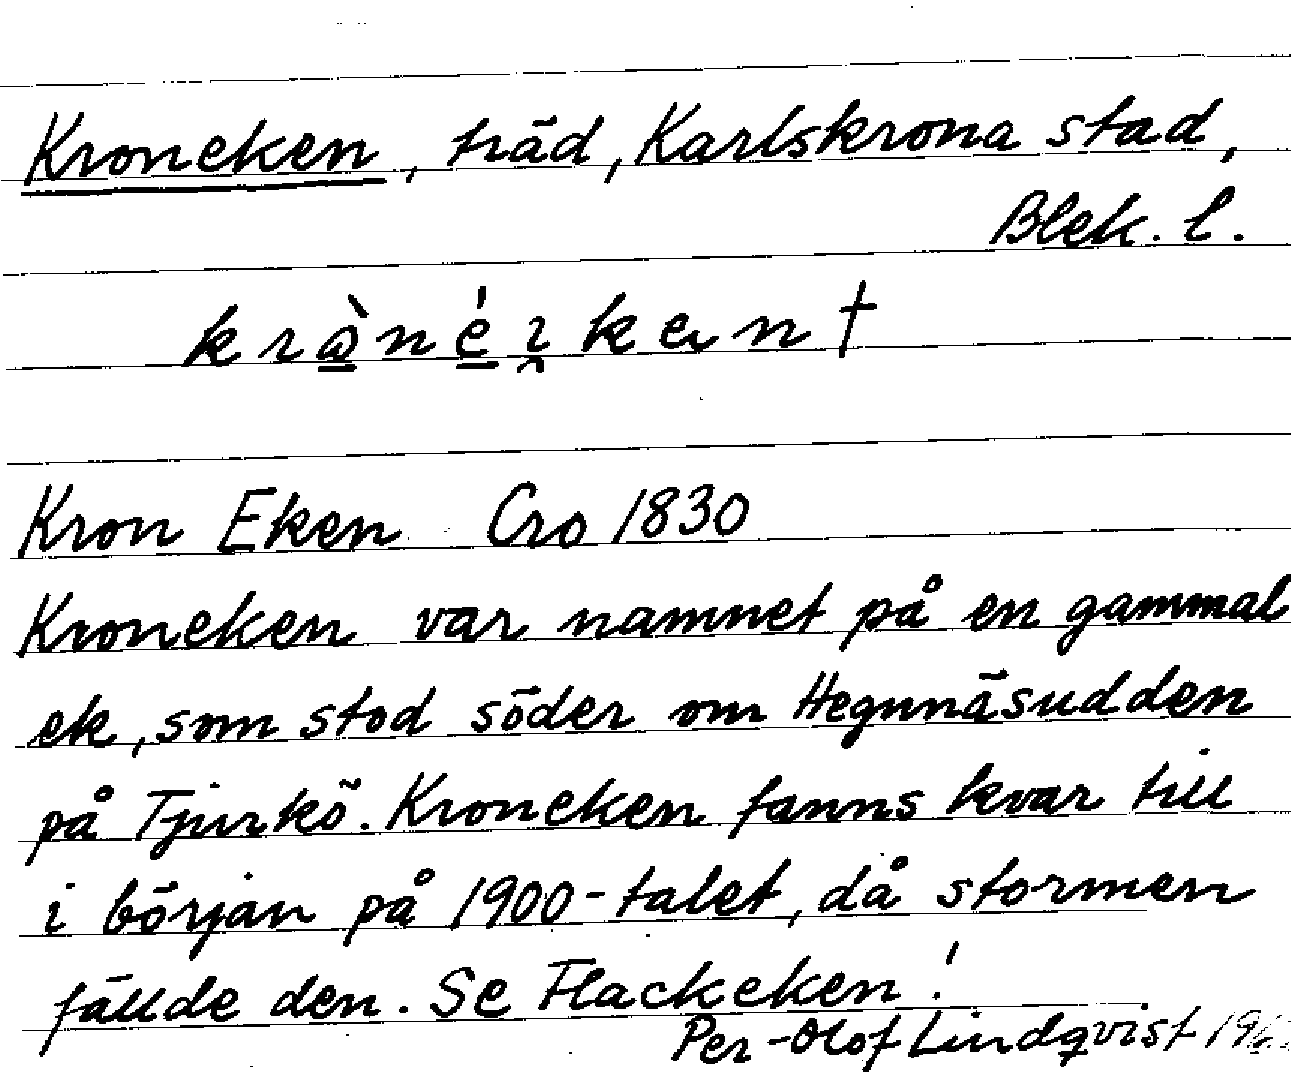 Kroneken, träd, Karlskrona stad,
Blek. l.
krànéi̯ken †
Kron Eken Cro 1830
Kroneken var namnet på en gammal
ek, som stod söder om Hegnnäsudden
på Tjurkö. Kroneken fanns kvar till
i början på 1900-talet, då stormen
fällde den. Se Flackeken!
Per-Olof Lindqvist